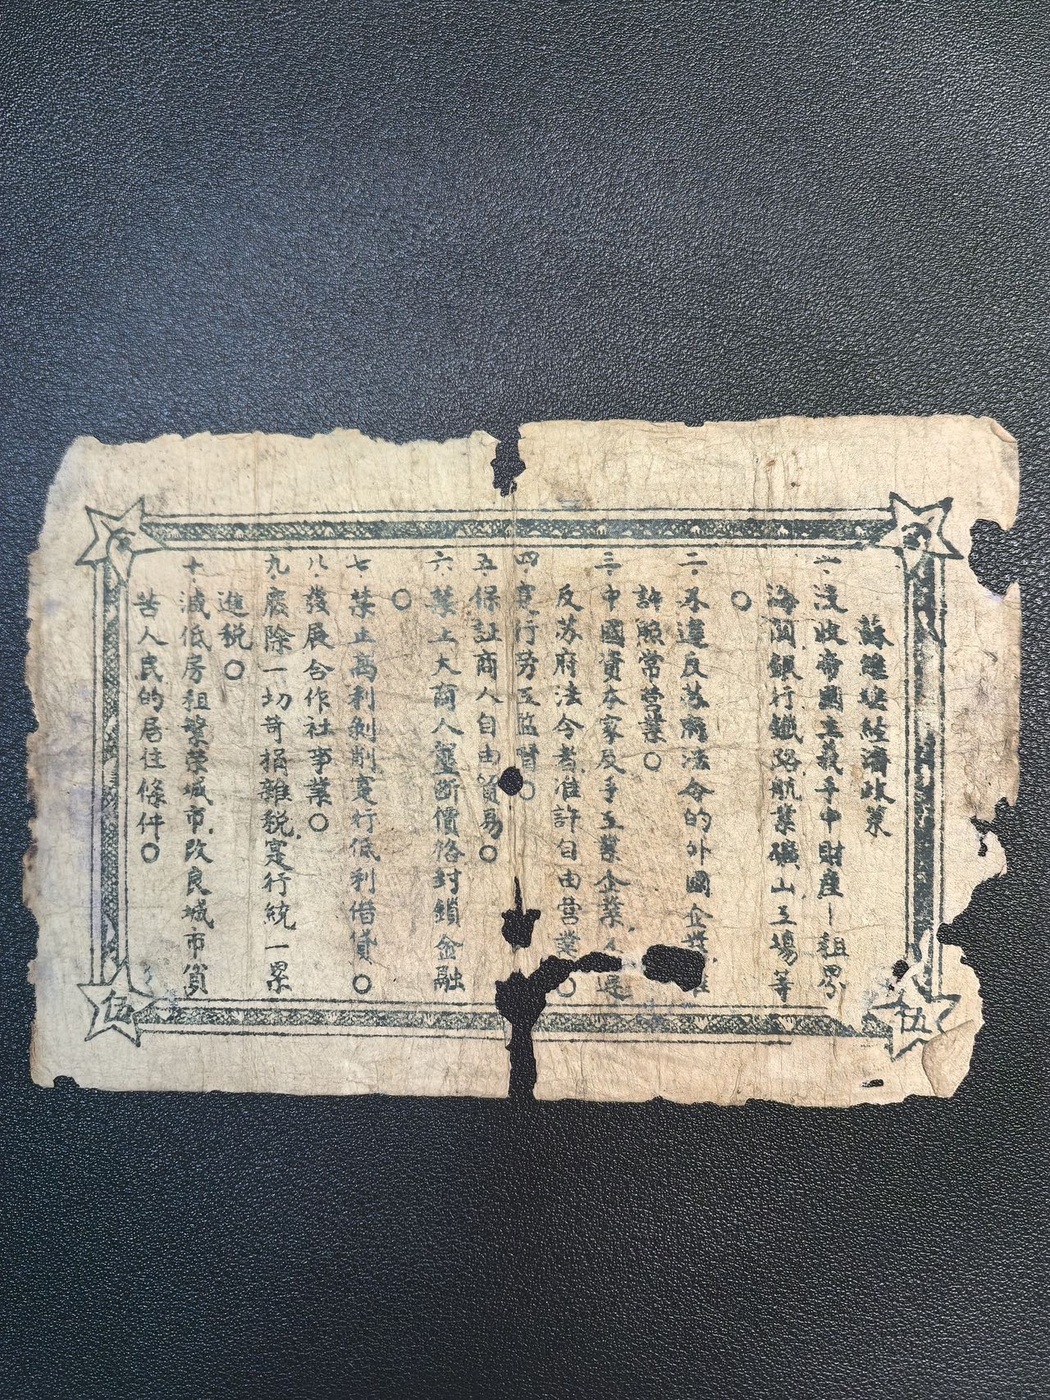 蘇維埃經濟政策
一没收帝國主義手中財産—租界
海関銀行鐵路航業礦山工場等
〇
二不違反苏府法令的外國企業准
許照常营業〇
三中國資本家及手工業企業不違
反苏府法令者准許自由营業〇
四寔行劳工监督〇
五保証商人自由貿易〇
六禁止大商人壟断價格封鎖金融
〇
七禁止高利剝削寔行低利借貸〇
八發展合作社事業〇
九廢除一切苛捐雜税寔行統一累
進税〇
十減低房租繁荣城市改良城市貧
苦人民的居住條件〇
伍
伍